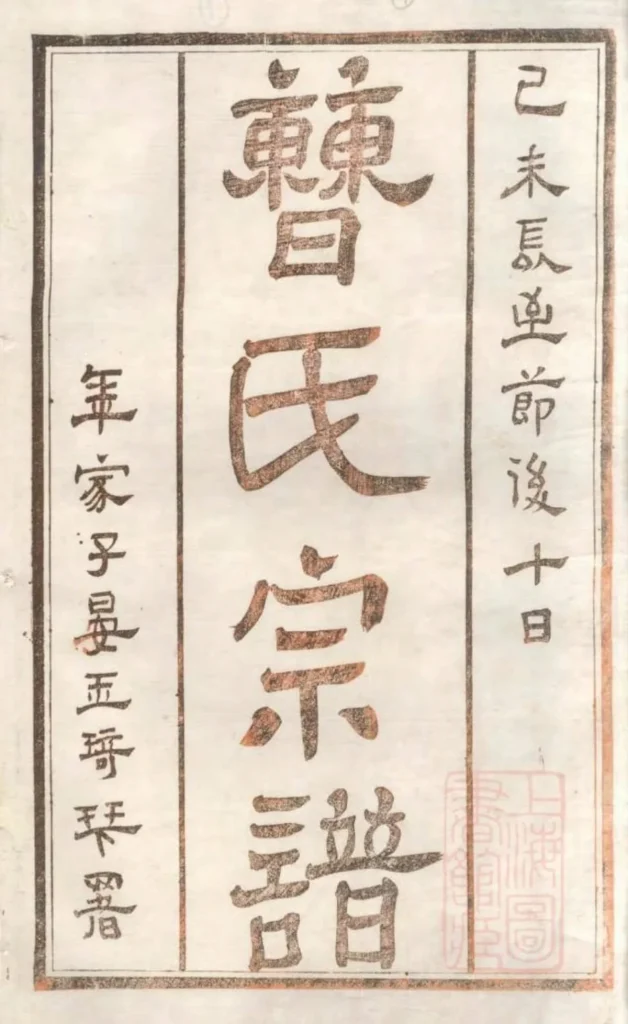 己未長至節後十日
曹氏宗譜
年家子晏五琦琹署
上海圖書館藏